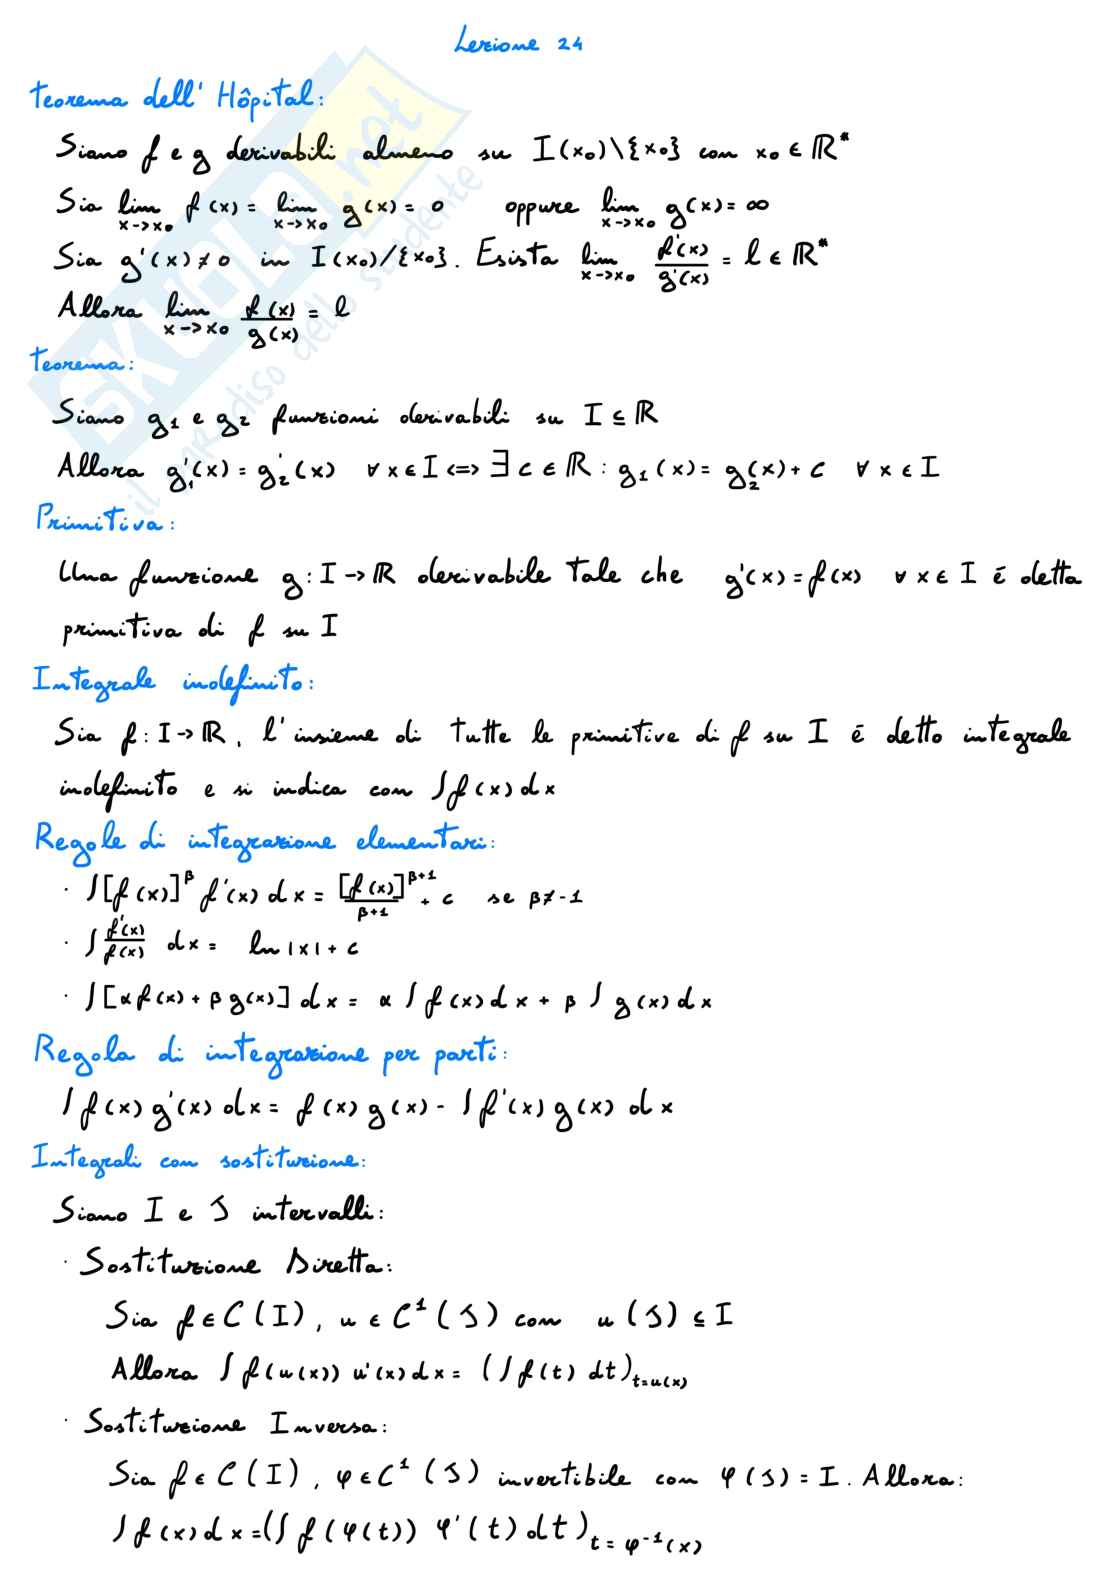 Lezione 24
Teorema dell' Hôpital:
Siano f e g derivabili almeno su I(x₀)\{x₀} con x₀ ∈ ℝ*
Sia lim x->x₀ f(x) = lim x->x₀ g(x) = 0 oppure lim x->x₀ g(x) = ∞
Sia g'(x) ≠ 0 in I(x₀)/{x₀}. Esista lim x->x₀ f'(x)/g'(x) = l ∈ ℝ*
Allora lim x->x₀ f(x)/g(x) = l
Teorema:
Siano g₁ e g₂ funzioni derivabili su I ⊆ ℝ
Allora g₁'(x) = g₂'(x) ∀ x ∈ I <=> ∃ c ∈ ℝ : g₁(x) = g₂(x) + c ∀ x ∈ I
Primitiva:
Una funzione g : I -> ℝ derivabile tale che g'(x) = f(x) ∀ x ∈ I é detta
primitiva di f su I
Integrale indefinito:
Sia f : I -> ℝ, l'insieme di tutte le primitive di f su I é detto integrale
indefinito e si indica con ∫ f(x) dx
Regole di integrazione elementari:
· ∫ [f(x)]^β f'(x) dx = [f(x)]^(β+1)/(β+1) + c se β ≠ -1
· ∫ f'(x)/f(x) dx = ln |x| + c
· ∫ [α f(x) + β g(x)] dx = α ∫ f(x) dx + β ∫ g(x) dx
Regola di integrazione per parti:
∫ f(x) g'(x) dx = f(x) g(x) - ∫ f'(x) g(x) dx
Integrali con sostituzione:
Siano I e J intervalli:
· Sostituzione Diretta:
Sia f ∈ C(I), u ∈ C¹(J) con u(J) ⊆ I
Allora ∫ f(u(x)) u'(x) dx = (∫ f(t) dt)_t=u(x)
· Sostituzione Inversa:
Sia f ∈ C(I), φ ∈ C¹(J) invertibile con φ(J) = I. Allora:
∫ f(x) dx = (∫ f(φ(t)) φ'(t) dt)_t=φ⁻¹(x)
SKUOLA.net
il paradiso dello studente